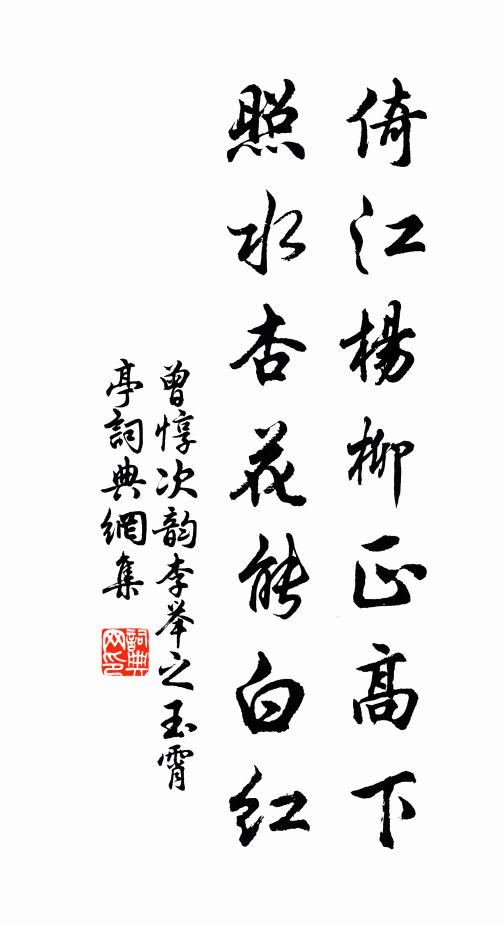 倚江楊柳正高下
照水杏花能白红
曾惇次韵李举之玉霄
亭詞典網集
詞典网印